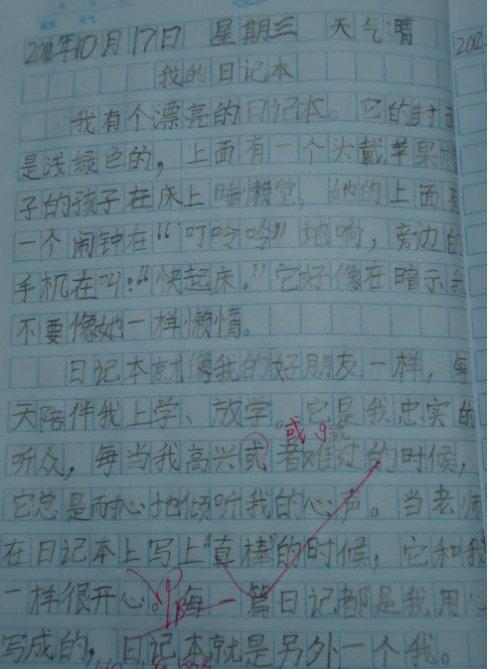 2012年10月17日 星期三 天气晴
我的日记本
我有个漂亮的日记本。它的封面
是浅绿色的，上面有一个头戴苹果帽
子的孩子在床上睡懒觉，她的上面有
一个闹钟在“叮呤呤”地响，旁边的
手机在叫：“快起床。”它好像在暗示我
不要像她一样懒惰。
日记本就像我的好朋友一样，每
天陪伴我上学、放学。它是我忠实的
听众，每当我高兴或者难过的时候，
它总是耐心地倾听我的心声。当老师
在日记本上写上“真棒”的时候，它和我
一样很开心。每一篇日记都是我用心
写成的，日记本就是另外一个我。
2012.